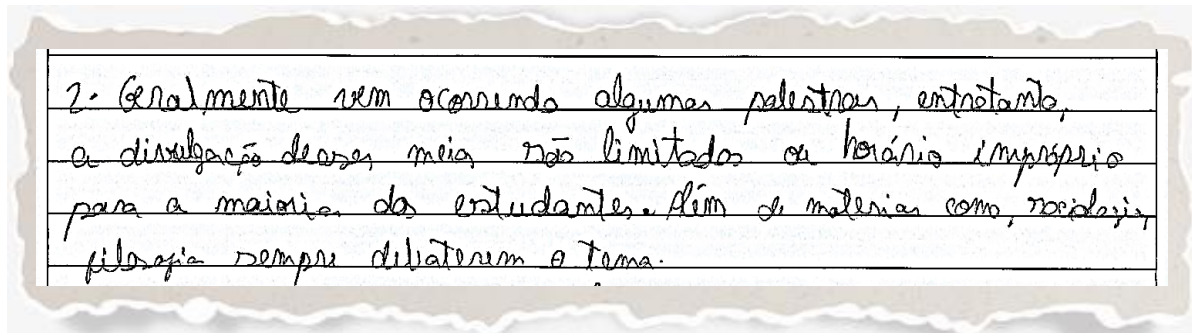 2- Geralmente vem ocorrendo algumas palestras, entretanto,
a divulgação desses meios são limitados ou horário impróprio
para a maioria dos estudantes. Além de materias como, sociologia,
filosofia sempre debaterem o tema.